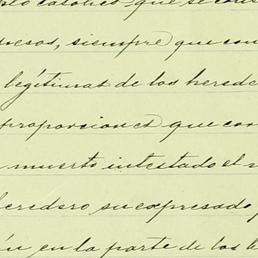 católico que se cons
pesos, siempre que con
legítimas de los herede
proporciones que cor
muerto intestado el
heredero su expresado
en la parte de los h